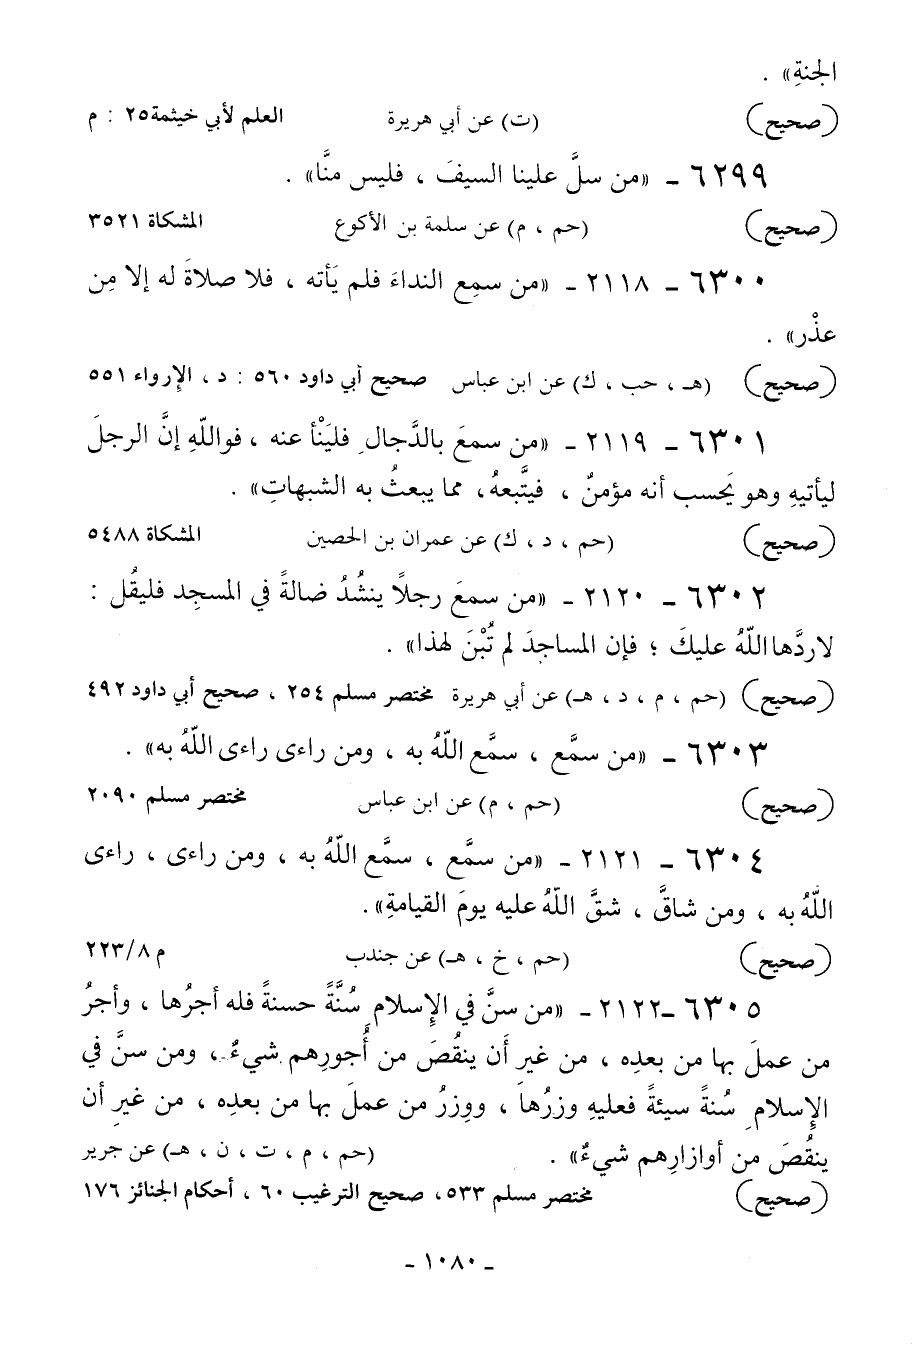 الجنةِ» .
(صحيح) (ت) عن أبي هريرة العلم لأبي خيثمة٢٥ : م
٦٢٩٩ ـ «من سلَّ علينا السيفَ ، فليس منَّا» .
(صحيح) (حم ، م) عن سلمة بن الأكوع المشكاة ٣٥٢١
٦٣٠٠ ـ ٢١١٨ ـ «من سمِع النداءَ فلم يَأته ، فلا صلاةَ له إلا مِن
عذْر» .
(صحيح) (هـ ، حب ، ك) عن ابن عباس صحيح أبي داود ٥٦٠ : د ، الإرواء ٥٥١
٦٣٠١ ـ ٢١١٩ ـ «من سمعَ بالدَّجالِ فليَنْأ عنه ، فواللّهِ إنَّ الرجلَ
ليأتيهِ وهو يَحسب أنه مؤمنٌ ، فيتَّبعهُ، مما يبعثُ به الشبهاتِ» .
(صحيح) (حم ، د ، ك) عن عمران بن الحصين المشكاة ٥٤٨٨
٦٣٠٢ ـ ٢١٢٠ ـ «من سمعَ رجلاً ينشُدُ ضالةً في المسجِد فليقُل :
لاردَّها اللّهُ عليكَ ؛ فإن المساجدَ لم تُبْنَ لهذا» .
(صحيح) (حم ، م ، د ، هـ) عن أبي هريرة مختصر مسلم ٢٥٤ ، صحيح أبي داود ٤٩٢
٦٣٠٣ ـ «من سمَّع ، سمَّع اللّهُ به ، ومن راءى راءى اللّهُ به» .
(صحيح) (حم ، م) عن ابن عباس مختصر مسلم ٢٠٩٠
٦٣٠٤ ـ ٢١٢١ ـ «من سمَّع ، سمَّع اللّهُ به ، ومن راءى ، راءى
اللّهُ به ، ومن شاقَّ ، شقَّ اللّهُ عليه يومَ القيامةِ» .
(صحيح) (حم ، خ ، هـ) عن جندب م ٢٢٣/٨
٦٣٠٥ ـ٢١٢٢ ـ «من سنَّ في الإسلامِ سُنَّةً حسنةً فله أجرُها ، وأجرُ
من عملَ بها من بعدِه ، من غير أن ينقُصَ من أُجورِهم شيءٌ ، ومن سنَّ في
الإسلامِ سُنةً سيئةً فعليهِ وزرُها ، ووِزرُ من عملَ بها من بعدِه ، من غيرِ أن
ينقُصَ من أوازارِهم شيءٌ» . (حم ، م ، ت ، ن ، هـ) عن جرير
(صحيح) مختصر مسلم ٥٣٣، صحيح الترغيب ٦٠ ، أحكام الجنائز ١٧٦
ـ ١٠٨٠ ـ